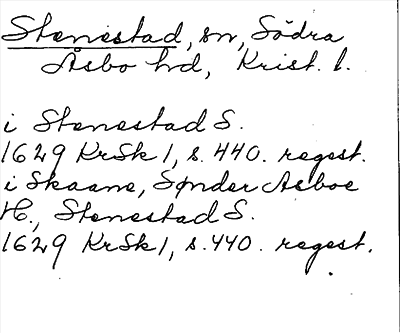 Stenestad, sn, Södra
Åsbo hd, Krist. l.
i Stenestad S.
1629 KrSk 1, s. 440. regest.
i Skaane, Sønder Aesboe
H., Stenestad S.
1629 KrSk 1, s. 440. regest.